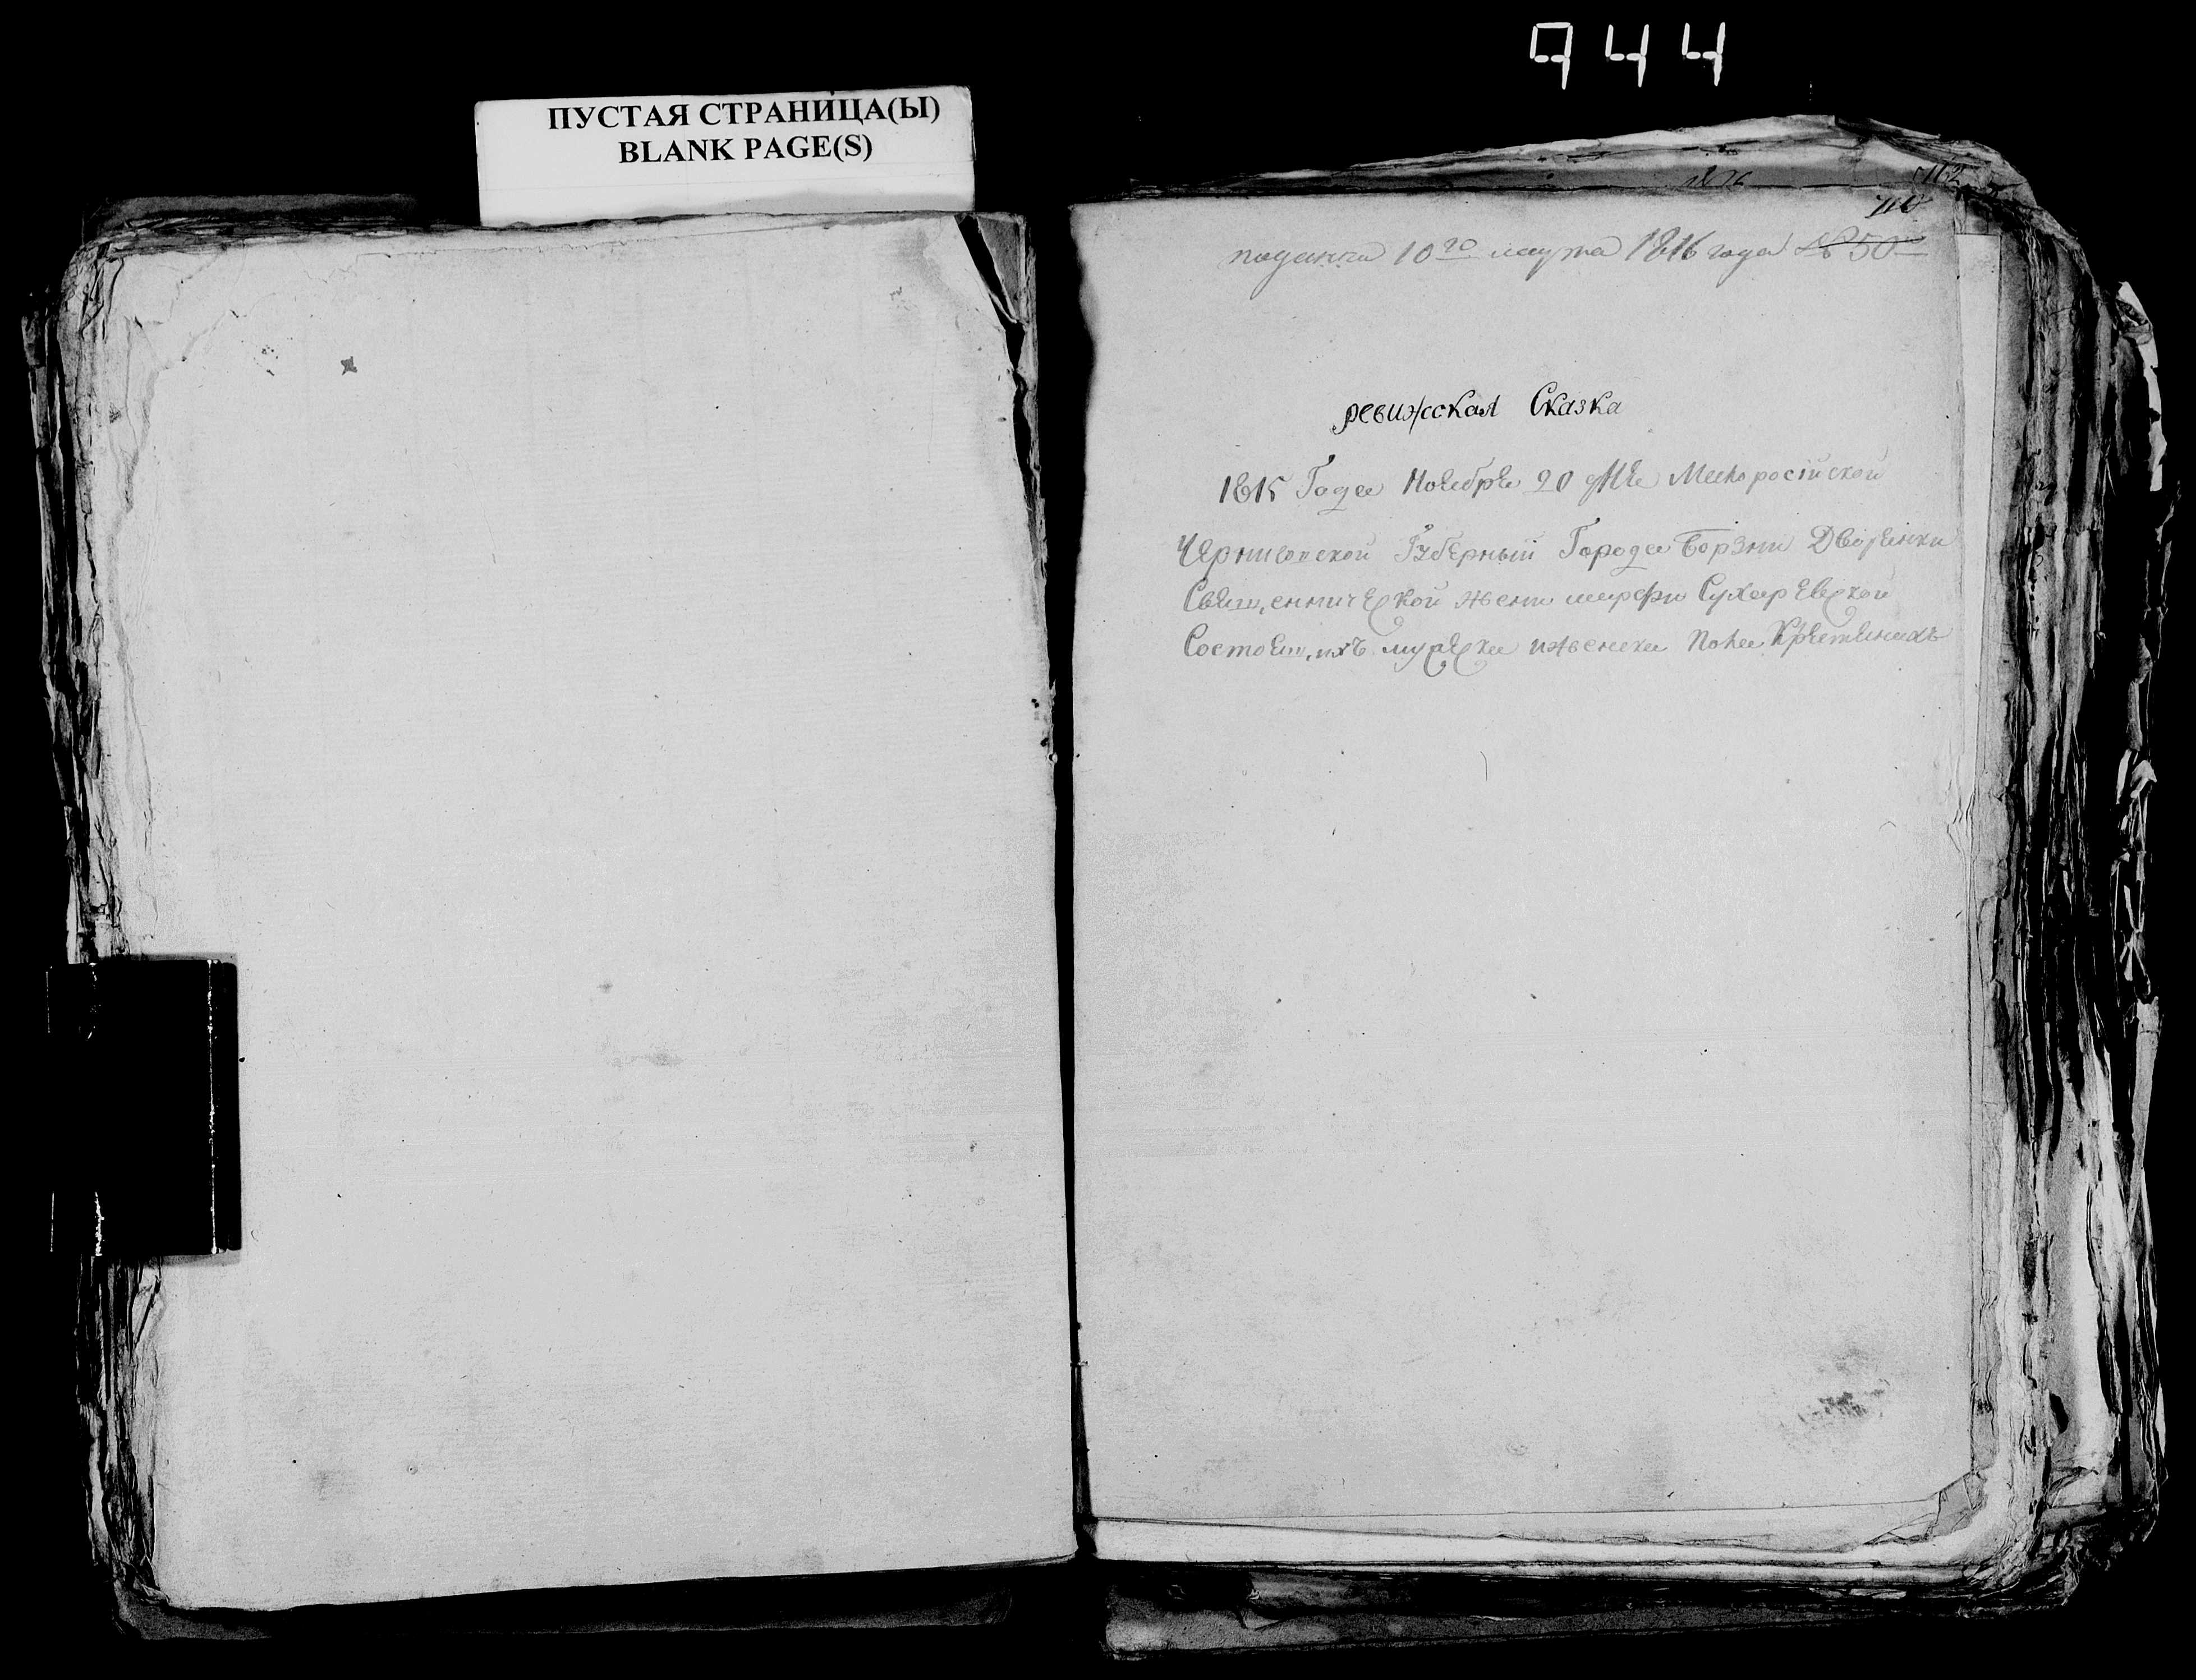 944
ПУСТАЯ СТРАНИЦА(Ы)
BLANK PAGE(S)
162
710
поданна 10го марта 1816 года № 50
ревижская Сказка
1815 Года Ноября 20 дня Малоросійской
Черниговской Губерныи Города Борзни Дворянки
Священнической жени марфи Сухаревской
Состоящихъ мужеска иженска пола Крстянахъ